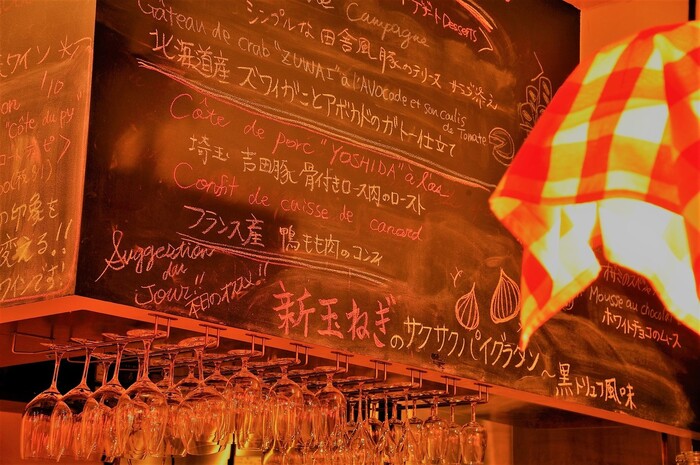 ワイン
'10
"Côte du py"
の印象を
変える!!
ワインです!
Campagne
シンプルな田舎風豚のテリーヌ
Desserts)
Gâteau de crab "ZUWAI" à l'AVOcade et son coulis
de Tomate
北海道産 ズワイガニとアボカドのガトー仕立て
Côte de porc "YOSHIDA" à l'os
埼玉 吉田豚 骨付きロース肉のロースト
Confit de cuisse de canard
フランス産 鴨もも肉のコンフィ
Suggestion
du
Jour!!
本日のオススメ!!
新玉ねぎのサクサクパイグラタン
～黒トリュフ風味
Mousse au chocolat
ホワイトチョコのムース